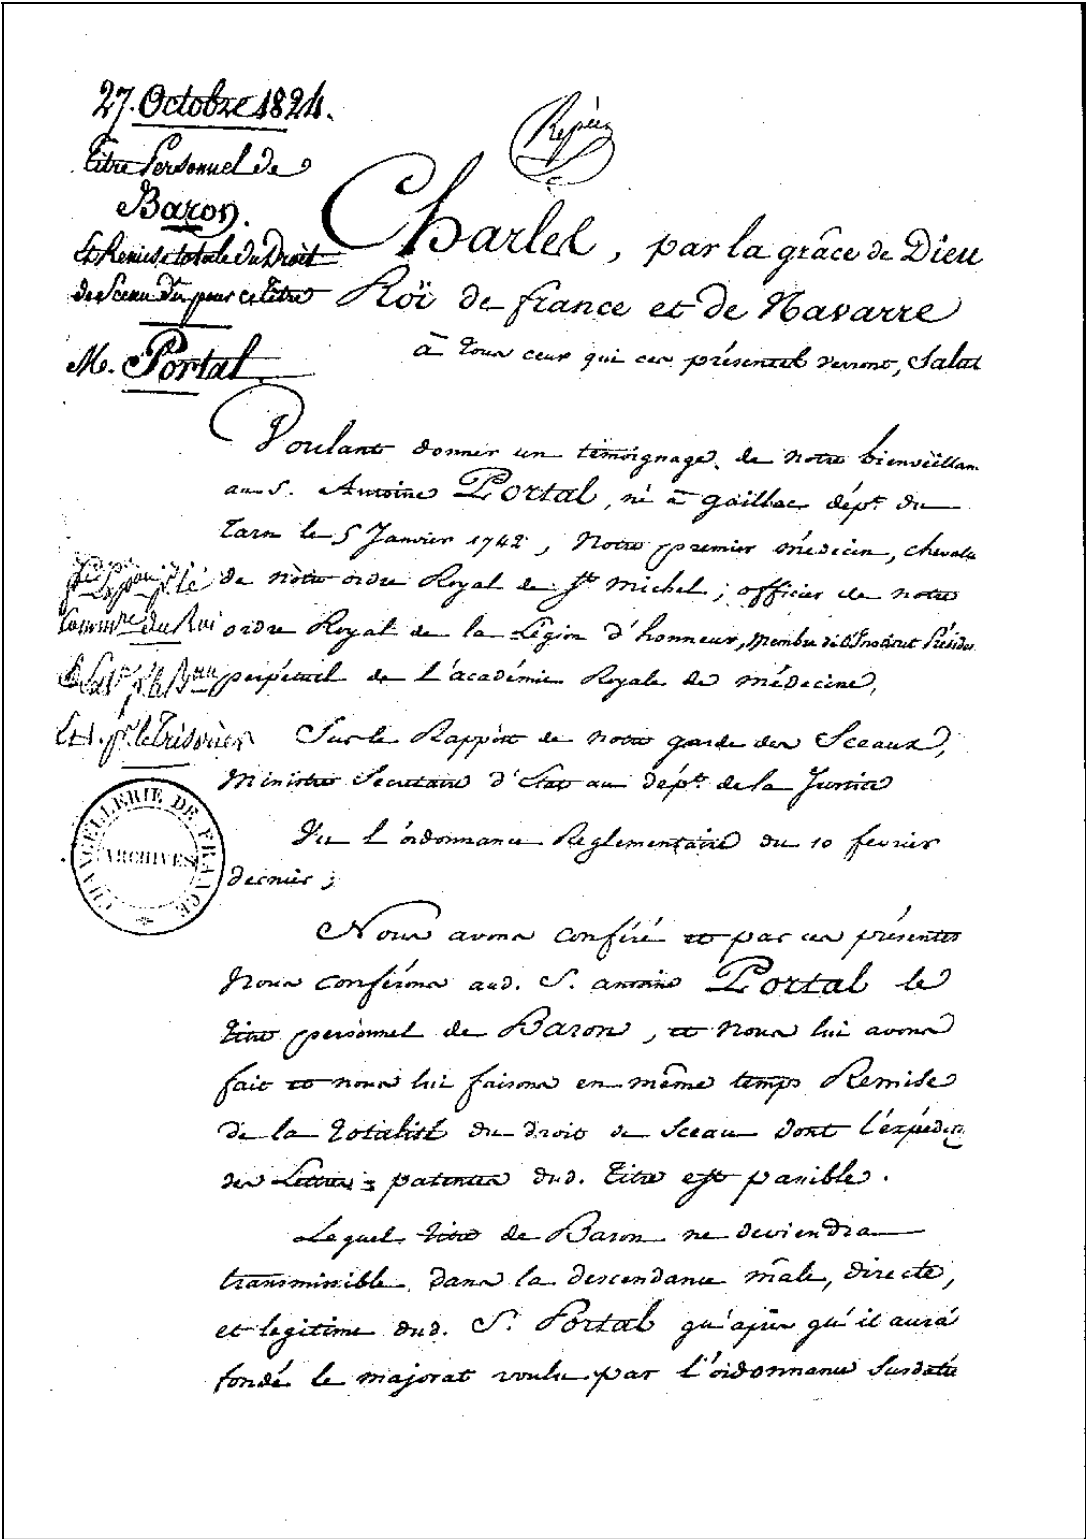 27. Octobre 1824.
Titre Personnel de
Baron.
Et Remise totale du Droit
de Sceau dû pour ce Titre
M. Portal
Charles, par la grâce de Dieu
Roï de france et de Navarre
à tous ceux qui ces présentes verront, Salut
Voulant donner un témoignage de notre bienvëillan
au S. Antoine Portal, né à gaillac dépt. du
Tarn le 5 Janvier 1742, Notre premier médecin, chevalier
de nôtre ordre Royal de St. Michel; officier de notre
ordre Royal de la Légion d'honneur, Membre de l'Institut Présiden
perpétuel de l'académie Royale de médecine,
Commre. du Roi
Sur le Rapport de notre garde des Sceaux,
Ministre Secretaire d'Etat au dépt. de la Justice
Vu l'ordonnance Reglementaire du 10 fevrier
dernier;
CHANCELLERIE DE FRANCE
ARCHIVES
Nous avons conféré et par ces présentes
Nous conférons aud. S. antoine Portal le
titre personnel de Baron, et nous lui avons
fait et nous lui faisons en même temps Remise
de la totalité du droit de Sceau dont l'expédion
des Lettres = patentes dud. titre est passible.
Lequel titre de Baron ne deviendra
transmissible dans la descendance mâle, directe,
et legitime dud. S. Portal qu'après qu'il aura
fondé le majorat voulu par l'ordonnance Susdatée